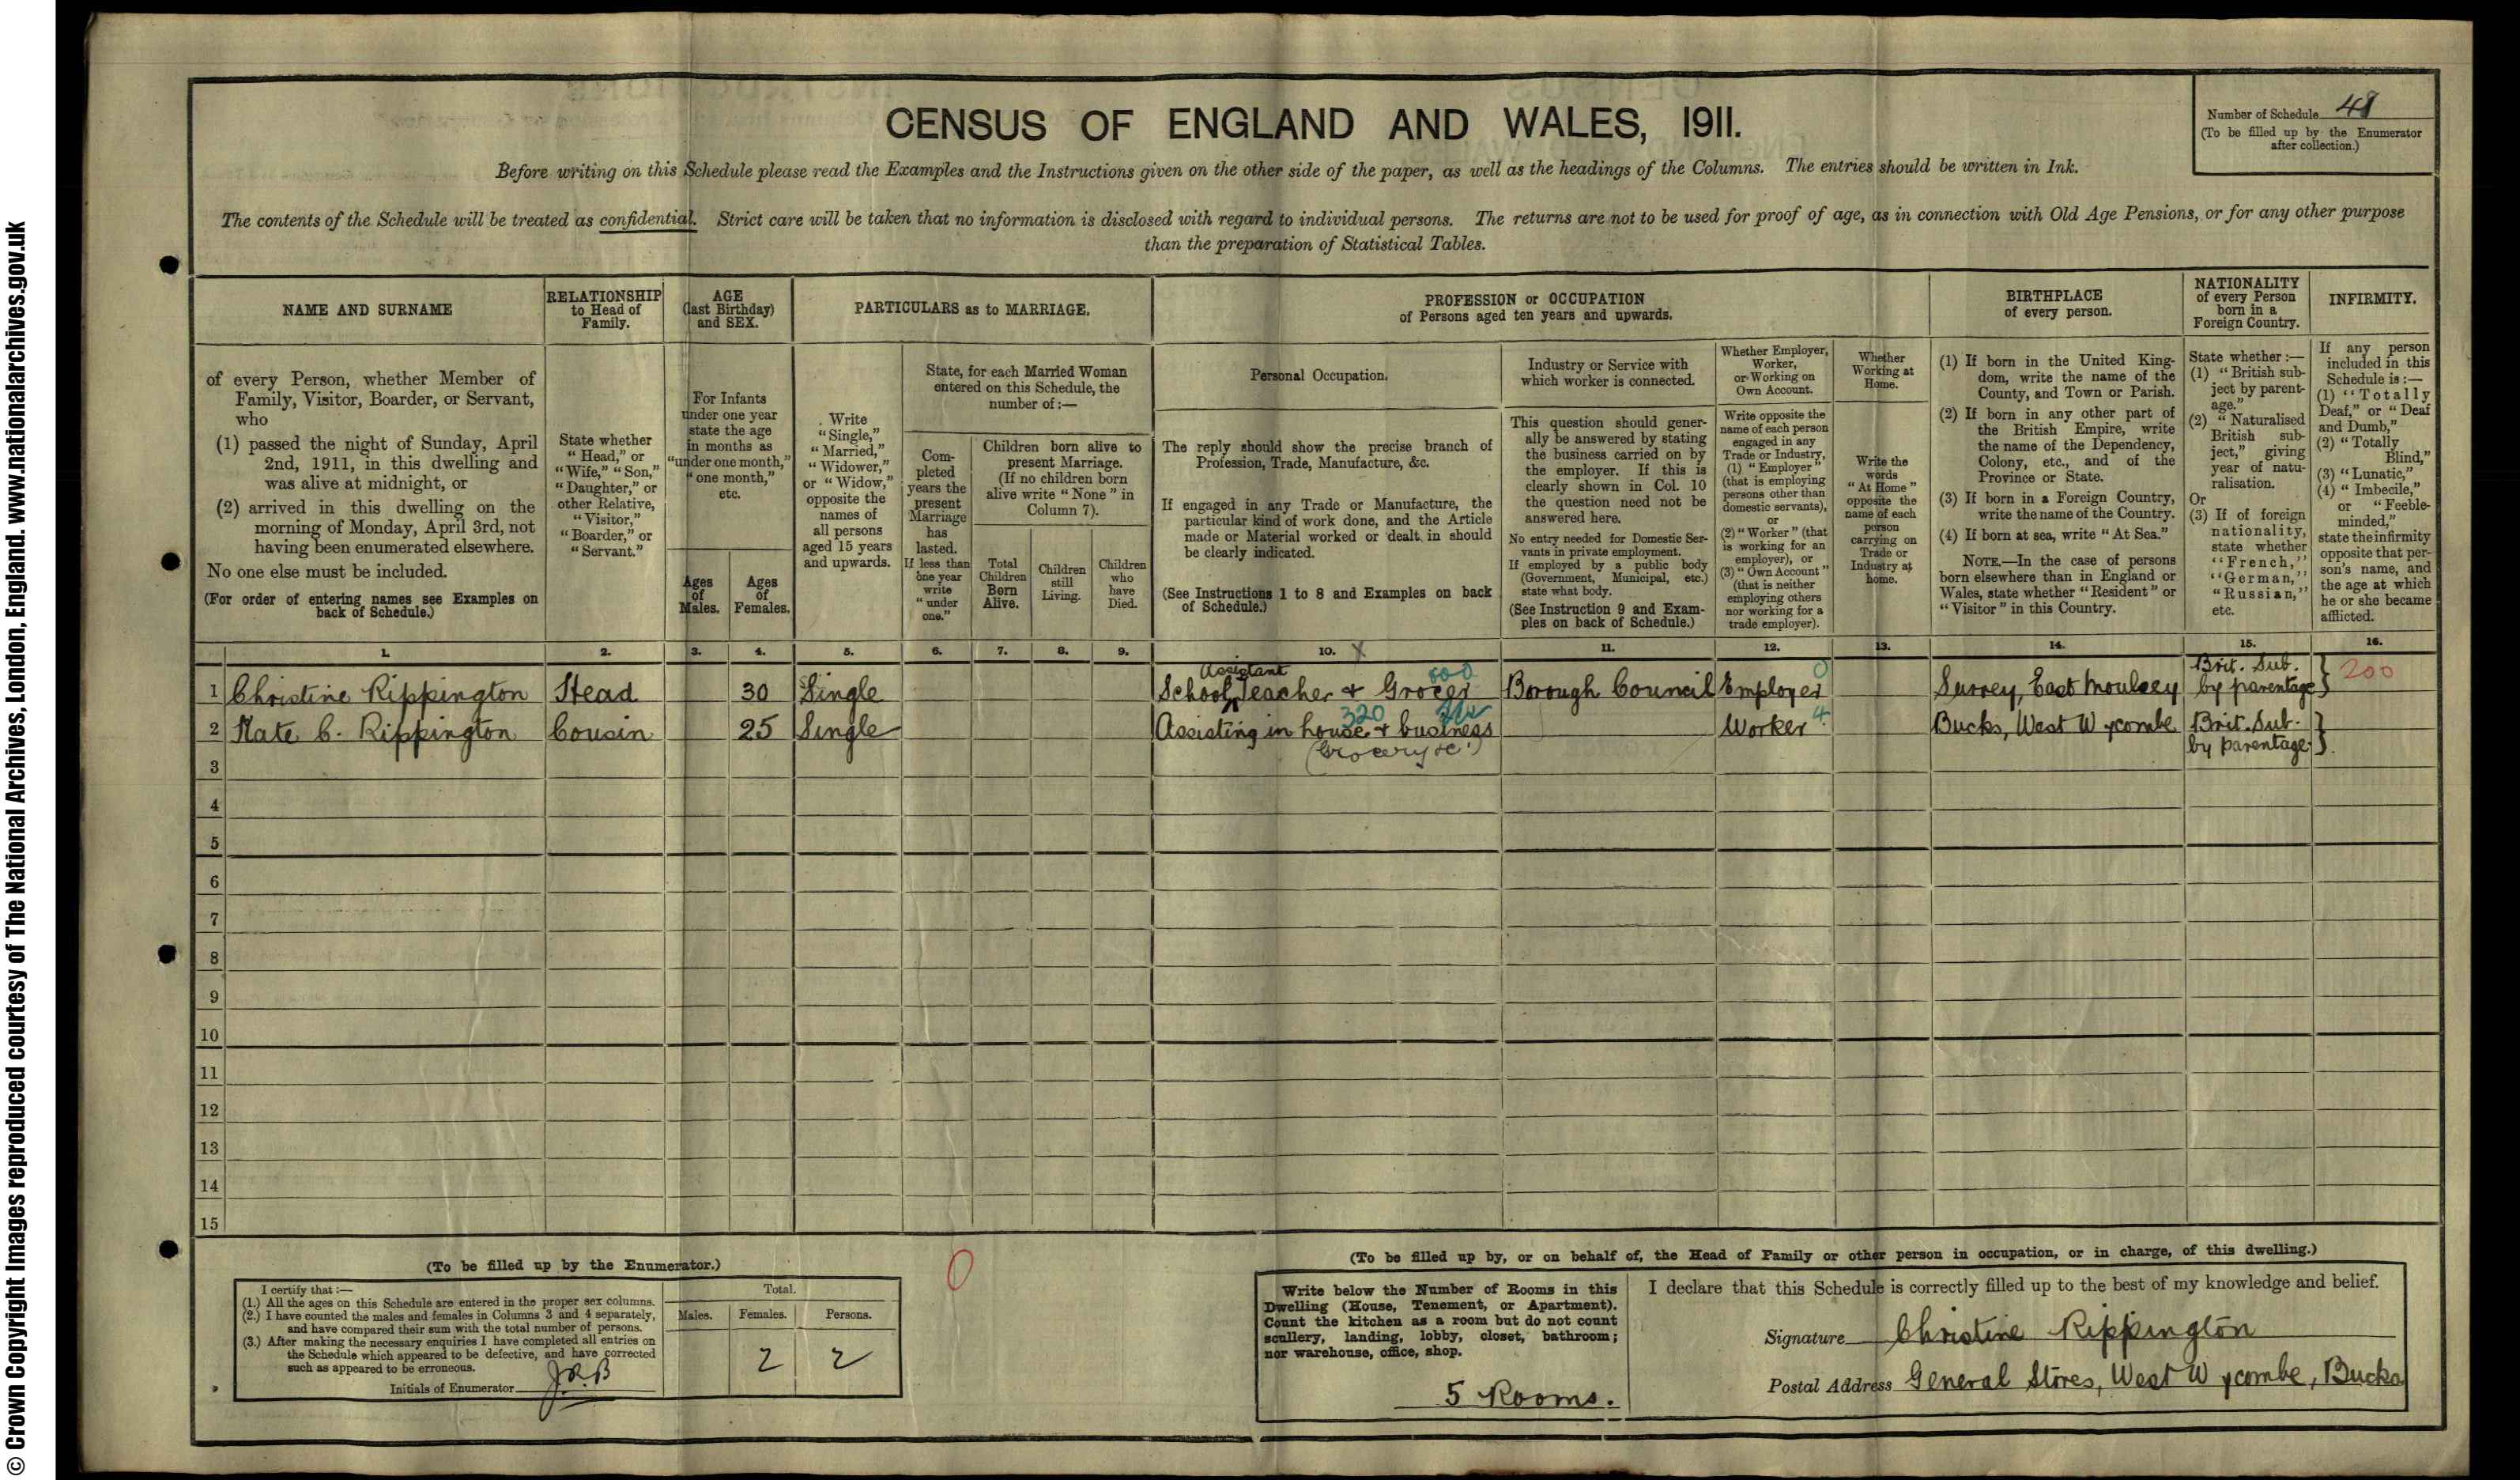 © Crown Copyright Images reproduced courtesy of The National Archives, London, England. www.nationalarchives.gov.uk
CENSUS OF ENGLAND AND WALES, 1911.
Number of Schedule 48
(To be filled up by the Enumerator
after collection.)
Before writing on this Schedule please read the Examples and the Instructions given on the other side of the paper, as well as the headings of the Columns. The entries should be written in Ink.
The contents of the Schedule will be treated as confidential. Strict care will be taken that no information is disclosed with regard to individual persons. The returns are not to be used for proof of age, as in connection with Old Age Pensions, or for any other purpose
than the preparation of Statistical Tables.
NAME AND SURNAME
of every Person, whether Member of
Family, Visitor, Boarder, or Servant,
who
(1) passed the night of Sunday, April
2nd, 1911, in this dwelling and
was alive at midnight, or
(2) arrived in this dwelling on the
morning of Monday, April 3rd, not
having been enumerated elsewhere.
No one else must be included.
(For order of entering names see Examples on
back of Schedule.)
RELATIONSHIP
to Head of
Family.
State whether
"Head," or
"Wife," "Son,"
"Daughter," or
other Relative,
"Visitor,"
"Boarder," or
"Servant."
AGE
(last Birthday)
and SEX.
For Infants
under one year
state the age
in months as
"under one month,"
"one month,"
etc.
Ages
of
Males.
Ages
of
Females.
PARTICULARS as to MARRIAGE.
Write
"Single,"
"Married,"
"Widower,"
or "Widow,"
opposite the
names of
all persons
aged 15 years
and upwards.
State, for each Married Woman
entered on this Schedule, the
number of:—
Com-
pleted
years the
present
Marriage
has
lasted.
If less than
one year
write
"under
one."
Children born alive to
present Marriage.
(If no children born
alive write "None" in
Column 7).
Total
Children
Born
Alive.
Children
still
Living.
Children
who
have
Died.
PROFESSION or OCCUPATION
of Persons aged ten years and upwards.
Personal Occupation.
The reply should show the precise branch of
Profession, Trade, Manufacture, &c.
If engaged in any Trade or Manufacture, the
particular kind of work done, and the Article
made or Material worked or dealt in should
be clearly indicated.
(See Instructions 1 to 8 and Examples on back
of Schedule.)
Industry or Service with
which worker is connected.
This question should gener-
ally be answered by stating
the business carried on by
the employer. If this is
clearly shown in Col. 10
the question need not be
answered here.
No entry needed for Domestic Ser-
vants in private employment.
If employed by a public body
(Government, Municipal, etc.)
state what body.
(See Instruction 9 and Exam-
ples on back of Schedule.)
Whether Employer,
Worker,
or Working on
Own Account.
Write opposite the
name of each person
engaged in any
Trade or Industry,
(1) "Employer"
(that is employing
persons other than
domestic servants),
or
(2) "Worker" (that
is working for an
employer), or
(3) "Own Account"
(that is neither
employing others
nor working for a
trade employer).
Whether
Working at
Home.
Write the
words
"At Home"
opposite the
name of each
person
carrying on
Trade or
Industry at
home.
BIRTHPLACE
of every person.
(1) If born in the United King-
dom, write the name of the
County, and Town or Parish.
(2) If born in any other part of
the British Empire, write
the name of the Dependency,
Colony, etc., and of the
Province or State.
(3) If born in a Foreign Country,
write the name of the Country.
(4) If born at sea, write "At Sea."
NOTE.—In the case of persons
born elsewhere than in England or
Wales, state whether "Resident" or
"Visitor" in this Country.
NATIONALITY
of every Person
born in a
Foreign Country.
State whether:—
(1) "British sub-
ject by parent-
age."
(2) "Naturalised
British sub-
ject," giving
year of natu-
ralisation.
Or
(3) If of foreign
nationality,
state whether
"French,"
"German,"
"Russian,"
etc.
INFIRMITY.
If any person
included in this
Schedule is:—
(1) "Totally
Deaf," or "Deaf
and Dumb,"
(2) "Totally
Blind,"
(3) "Lunatic,"
(4) "Imbecile,"
or "Feeble-
minded,"
state the infirmity
opposite that per-
son's name, and
the age at which
he or she became
afflicted.
1. 2. 3. 4. 5. 6. 7. 8. 9. 10. X 11. 12. 13. 14. 15. 16.
Assistant 600 0 Brit. Sub. 200
1 Christine Rippington Head 30 Single School Teacher & Grocer Borough Council Employer Surrey, East Moulsey by parentage
320 4
2 Kate C. Rippington Cousin 25 Single Assisting in house & business Worker Bucks, West Wycombe Brit. Sub.
(Grocery &c.) by parentage.
3
4
5
6
7
8
9
10
11
12
13
14
15
(To be filled up by the Enumerator.)
I certify that:—
(1.) All the ages on this Schedule are entered in the proper sex columns.
(2.) I have counted the males and females in Columns 3 and 4 separately,
and have compared their sum with the total number of persons.
(3.) After making the necessary enquiries I have completed all entries on
the Schedule which appeared to be defective, and have corrected
such as appeared to be erroneous.
Initials of Enumerator
Total.
Males. Females. Persons.
2 2
0
(To be filled up by, or on behalf of, the Head of Family or other person in occupation, or in charge, of this dwelling.)
Write below the Number of Rooms in this
Dwelling (House, Tenement, or Apartment).
Count the kitchen as a room but do not count
scullery, landing, lobby, closet, bathroom;
nor warehouse, office, shop.
5 Rooms.
I declare that this Schedule is correctly filled up to the best of my knowledge and belief.
Signature Christine Rippington
Postal Address General Stores, West Wycombe, Bucks